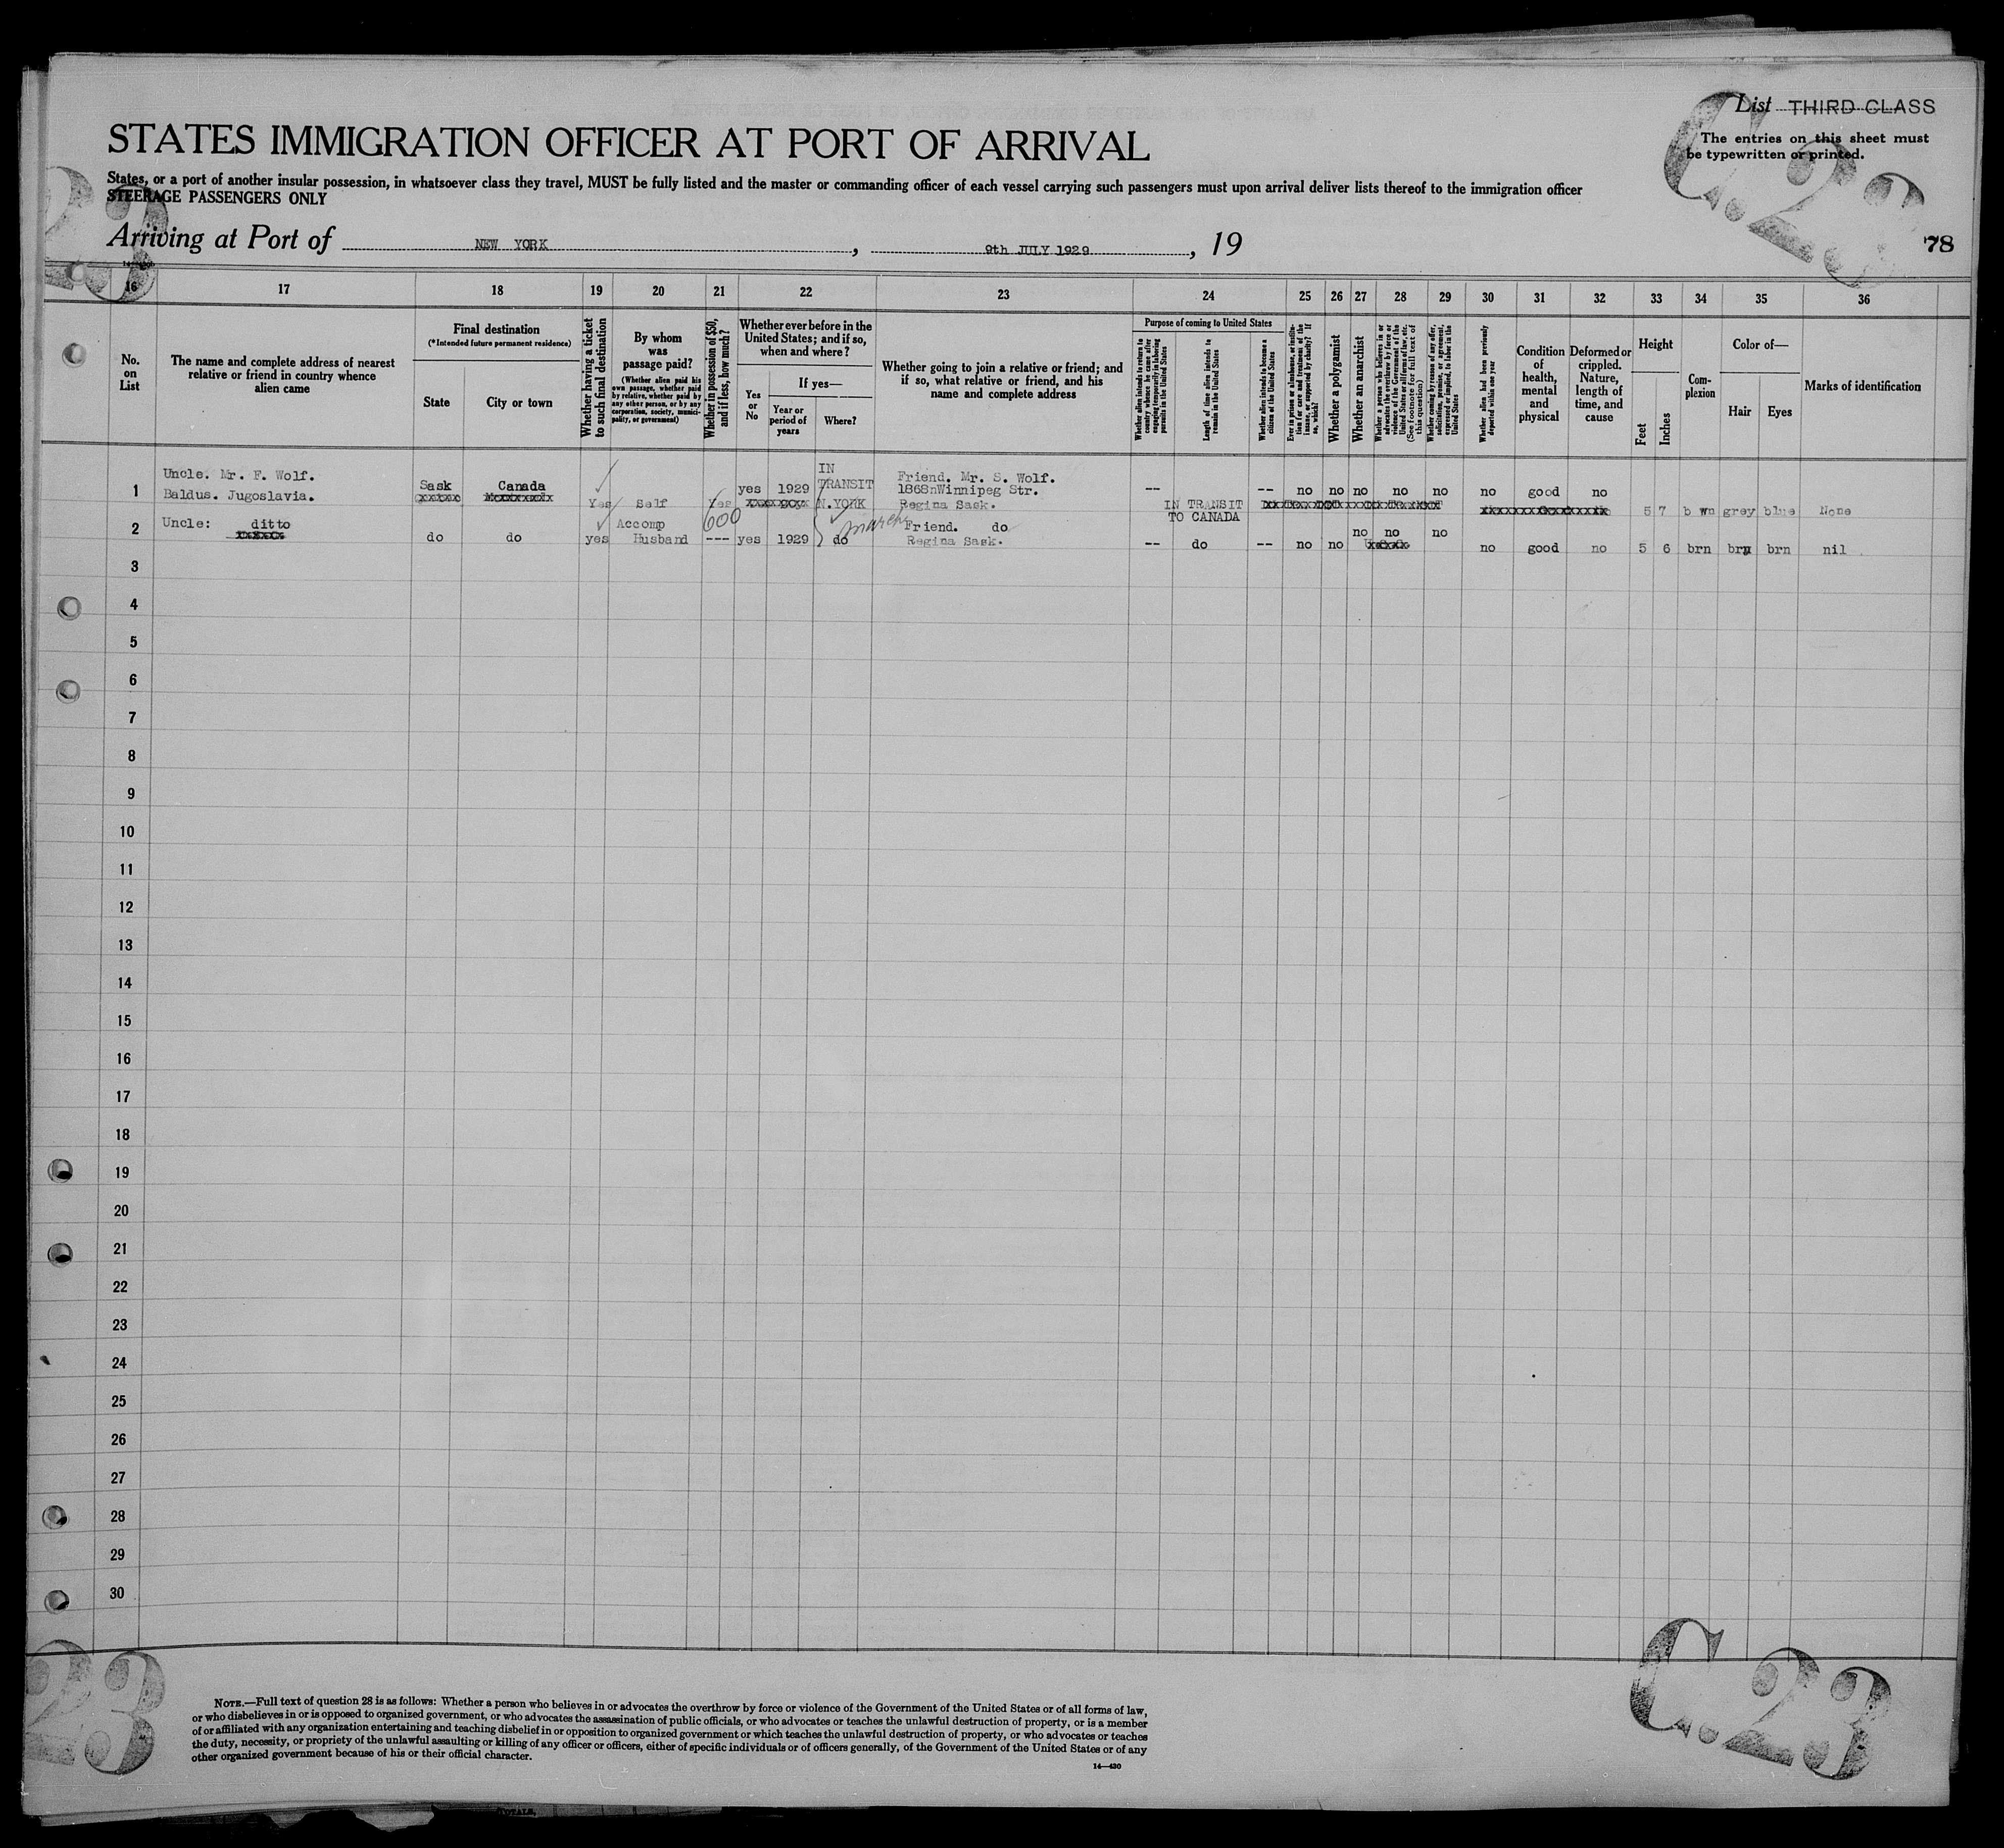 List THIRD CLASS
The entries on this sheet must
be typewritten or printed.
C.23
STATES IMMIGRATION OFFICER AT PORT OF ARRIVAL
States, or a port of another insular possession, in whatsoever class they travel, MUST be fully listed and the master or commanding officer of each vessel carrying such passengers must upon arrival deliver lists thereof to the immigration officer
STEERAGE PASSENGERS ONLY
Arriving at Port of NEW YORK, 9th JULY 1929, 19
78
16 17 18 19 20 21 22 23 24 25 26 27 28 29 30 31 32 33 34 35 36
No. on List
The name and complete address of nearest relative or friend in country whence alien came
Final destination
(*Intended future permanent residence)
State
City or town
Whether having a ticket to such final destination
By whom was passage paid?
(Whether alien paid his own passage, whether paid by relative, whether paid by any other person, or by any corporation, society, municipality, or government)
Whether in possession of $50, and if less, how much?
Whether ever before in the United States; and if so, when and where?
Yes or No
If yes—
Year or period of years
Where?
Whether going to join a relative or friend; and if so, what relative or friend, and his name and complete address
Purpose of coming to United States
Whether alien intends to return to country whence he came after engaging temporarily in laboring pursuits in the United States
Length of time alien intends to remain in the United States
Whether alien intends to become a citizen of the United States
Ever in prison or almshouse, or institution for care and treatment of the insane, or supported by charity? If so, which?
Whether a polygamist
Whether an anarchist
Whether a person who believes in or advocates the overthrow by force or violence of the Government of the United States or all forms of law, etc. (See footnote for full text of this question)
Whether coming by reason of any offer, solicitation, promise, or agreement, expressed or implied, to labor in the United States
Whether alien had been previously deported within one year
Condition of health, mental and physical
Deformed or crippled. Nature, length of time, and cause
Height
Feet
Inches
Complexion
Color of—
Hair
Eyes
Marks of identification
1 Uncle. Mr. F. Wolf.
Baldus. Jugoslavia.
Sask Canada Yes Self Yes yes 1929 IN TRANSIT N.YORK
Friend. Mr. S. Wolf.
1868nWinnipeg Str.
Regina Sask.
-- IN TRANSIT TO CANADA -- no no no no no no good no 5 7 b wn grey blue None
2 Uncle: ditto
do do yes Accomp Husband 600 --- yes 1929 do march
Friend. do
Regina Sask.
-- do -- no no no no no no good no 5 6 brn brn brn nil
3
4
5
6
7
8
9
10
11
12
13
14
15
16
17
18
19
20
21
22
23
24
25
26
27
28
29
30
23
C.23
NOTE.—Full text of question 28 is as follows: Whether a person who believes in or advocates the overthrow by force or violence of the Government of the United States or of all forms of law,
or who disbelieves in or is opposed to organized government, or who advocates the assassination of public officials, or who advocates or teaches the unlawful destruction of property, or is a member
of or affiliated with any organization entertaining and teaching disbelief in or opposition to organized government or which teaches the unlawful destruction of property, or who advocates or teaches
the duty, necessity, or propriety of the unlawful assaulting or killing of any officer or officers, either of specific individuals or of officers generally, of the Government of the United States or of any
other organized government because of his or their official character.
14—430
TOTALS,